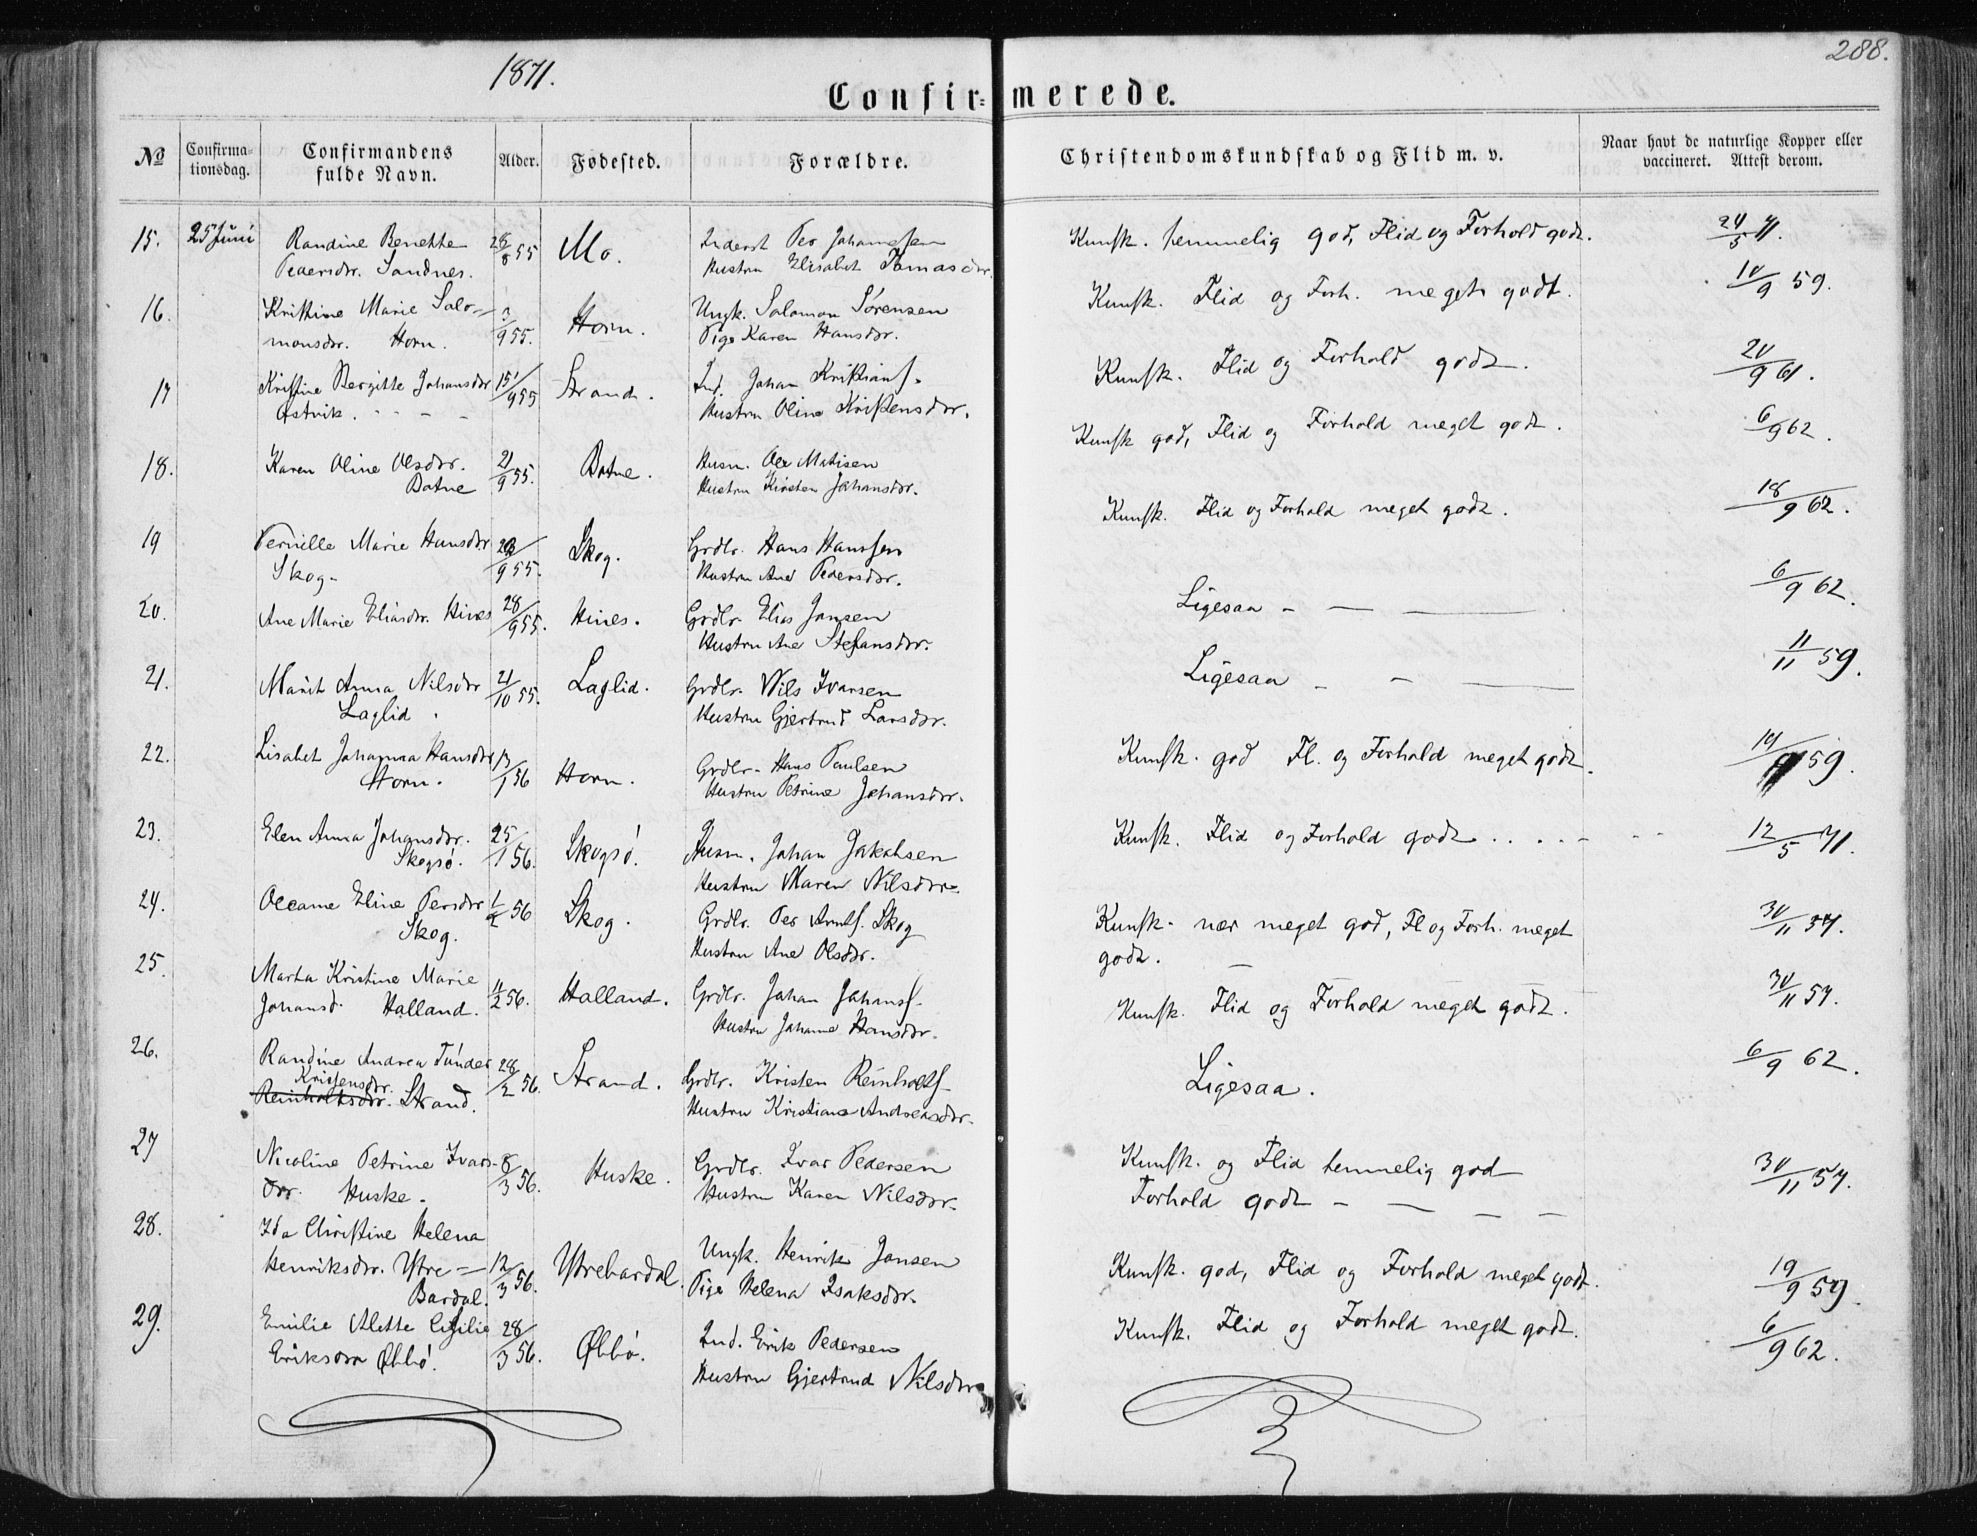 1871.
288.
Confirmerede.
No
Confirmationsdag.
Confirmandens fulde Navn.
Alder.
Fødested.
Forældre.
Christendomskundskab og Flid m. v.
Naar havt de naturlige Kopper eller vaccineret. Attest derom.
15. 25 Juni Randine Benette 28/8 55 Mo. Inderst Per Johannesen Kunsk. temmelig god, Flid og Forhold godt. 24/5 71.
Pedersdr. Sandnes. Hustru Elisabet Tomasdr.
16. Kristine Marie Salo- 3/9 55. Horn. Ungk. Salomon Sørensen Kunsk. Flid og Forh. meget godt. 10/9 59.
monsdr. Horn. Pige Karen Hansdr.
17 Kristine Bergitte Johansdr 15/9 55 Strand. Ind. Johan Kristians. Kunsk. Flid og Forhold godt. 20/9 61.
Østvik. Hustru Oline Kristensdr.
18. Karen Oline Olsdr. 21/9 55. Botne. Husm. Ole Matisen Kunsk god, Flid og Forhold meget godt. 6/9 62.
Botne Hustru Kirsten Johansdr.
19 Pernille Marie Hansdr /9 55. Skog. Grdbr. Hans Hanssen Kunsk. Flid og Forhold meget godt. 18/9 62.
Skog. Hustru Ane Pedersdr.
20. Ane Marie Eliasdr. Hines 28/9 55. Hines. Grdbr. Elias Jansen Ligesaa - — — 6/9 62.
Hustru Ane Stefansdr.
21. Marit Anna Nilsdr 21/10 55. Laglid. Grdbr. Nils Ivarsen Ligesaa - - — 11/11 59.
Laglid. Hustru Gjertrud Larsdr.
22. Lisabet Johanna Hansdr 13/1 56 Horn. Grdbr. Hans Paulsen Kunsk. god Fl. og Forhold meget godt. 19/ 59.
Horn. Hustru Petrine Johansdr.
23. Elen Anna Johansdr. 25/1 56. Skogsø. Husm. Johan Jakobsen Kunsk. Flid og Forhold godt . . . . - - - 12/5 71.
Skogsø. Hustru Maren Nilsdr.
24. Oleane Eline Persdr 1/2 56 Skog. Grdbr. Per Arnts. Skog Kunsk. nær meget god, Fl og Forh. meget 30/11 57.
Skog. Hustru Ane Olsdr. godt. —
25. Marta Kristine Marie 11/2 56. Halland. Grdbr. Johan Johans. Kunsk. Flid og Forhold meget godt. 30/11 57.
Johansd. Halland. Hustru Johanne Hansdr.
26. Randine Andrea Tunder 28/2 56. Strand. Grdbr. Kristen Reinholts. Ligesaa. 6/9 62.
Kristensdr.
Reinholtsdr. Strand. Hustru Kristiana Andreasdr.
27 Nicoline Petrine Ivars- 8/3 56. Huske. Grdbr. Ivar Pedersen Kunsk. og Flid temmelig god 30/11 57.
dr. Huske. Hustru Karen Nilsdr. Forhold godt - — - -
28. Ida Christine Helena
Henriksdr. Ytre = 12/3 56. Ytrebardal. Ungk. Henrik Jansen Kunsk. god, Flid og Forhold meget godt. 19/9 59
Bardal. Pige Helena Isaksdr.
29. Emilie Alette Cicilie 28/3 56. Øbbø. Ind. Erik Pedersen Kunsk. Flid og Forhold meget godt. 6/9 62.
Eriksdr Øbbø. Hustru Gjertrud Nilsdr.